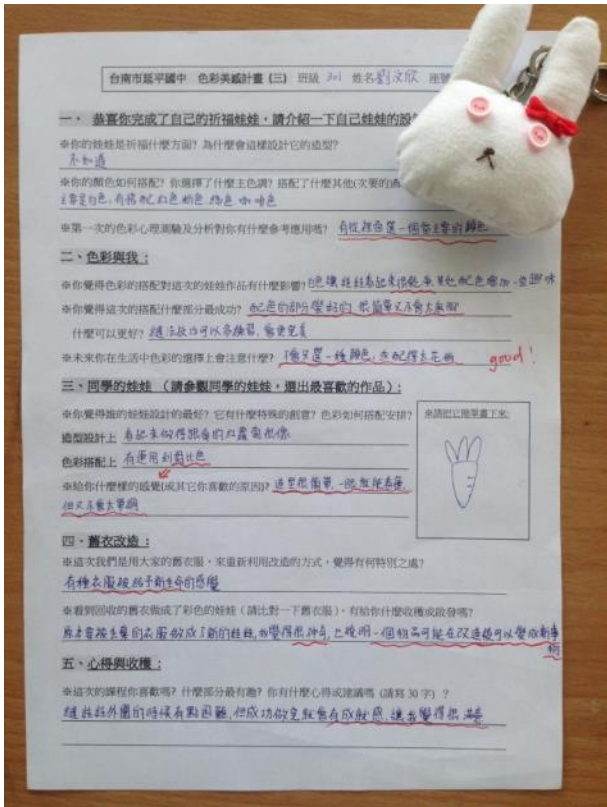 台南市延平國中 色彩美感計畫 (三) 班級 301 姓名 劉汶欣 座號
一、 恭喜你完成了自己的祈福娃娃，請介紹一下自己娃娃的設
※你的娃娃是祈福什麼方面？為什麼會這樣設計它的造型？
不知道
※你的顏色如何搭配？你選擇了什麼主色調？搭配了什麼其他(次要的)
主要是白色，有搭配紅色 粉色 綠色 咖啡色
※第一次的色彩心理測驗及分析對你有什麼參考應用嗎？ 有從裡面選一個當主要的顏色
二、色彩與我：
※你覺得色彩的搭配對這次的娃娃作品有什麼影響？白色讓娃娃看起來很乾淨 其他配色增加一些趣味
※你覺得這次的搭配什麼部分最成功？ 配色的部分蠻好的 很簡單又不會太無聊
什麼可以更好？ 縫法技巧可以多練習，會更完美
※未來你在生活中色彩的選擇上會注意什麼？ 不會只選一種顏色，也配得太花俏 good!
三、同學的娃娃 （請參觀同學的娃娃，選出最喜歡的作品）：
※你覺得誰的娃娃設計的最好？它有什麼特殊的創意？色彩如何搭配安排？
※請把它簡單畫下來：
造型設計上 看起來做得跟真的紅蘿蔔很像
色彩搭配上 有運用到對比色
※給你什麼樣的感覺(或其它你喜歡的原因)？ 造型很簡單，一眼就能看懂
但又不會太單調
四、舊衣改造：
※這次我們是用大家的舊衣服，來重新利用改造的方式，覺得有何特別之處？
有種衣服被賦予新生命的感覺
※看到回收的舊衣做成了彩色的娃娃（請比對一下舊衣服），有給你什麼收穫或啟發嗎？
原本要被丟棄的衣服做成了新的娃娃，我覺得很神奇，也證明一個物品可能在改造後可以變成新事
物
五、心得與收穫：
※這次的課程你喜歡嗎？什麼部分最有趣？你有什麼心得或建議嗎（請寫 30 字）？
縫娃娃外圍的時候有點困難，但成功做完就會有成就感，讓我覺得很滿意